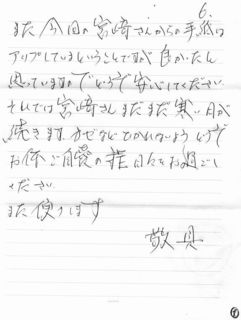 6.
また今回の宮崎さんからの手紙は
アップしていませんということですが 良かったと
思っていますのでどうぞ安心してください
それでは宮崎さんまだまだ寒い日が
続きます カゼなどひかれないよう どうぞ
お体ご自愛の程 日々をお過ごし
ください
また便りします
敬具